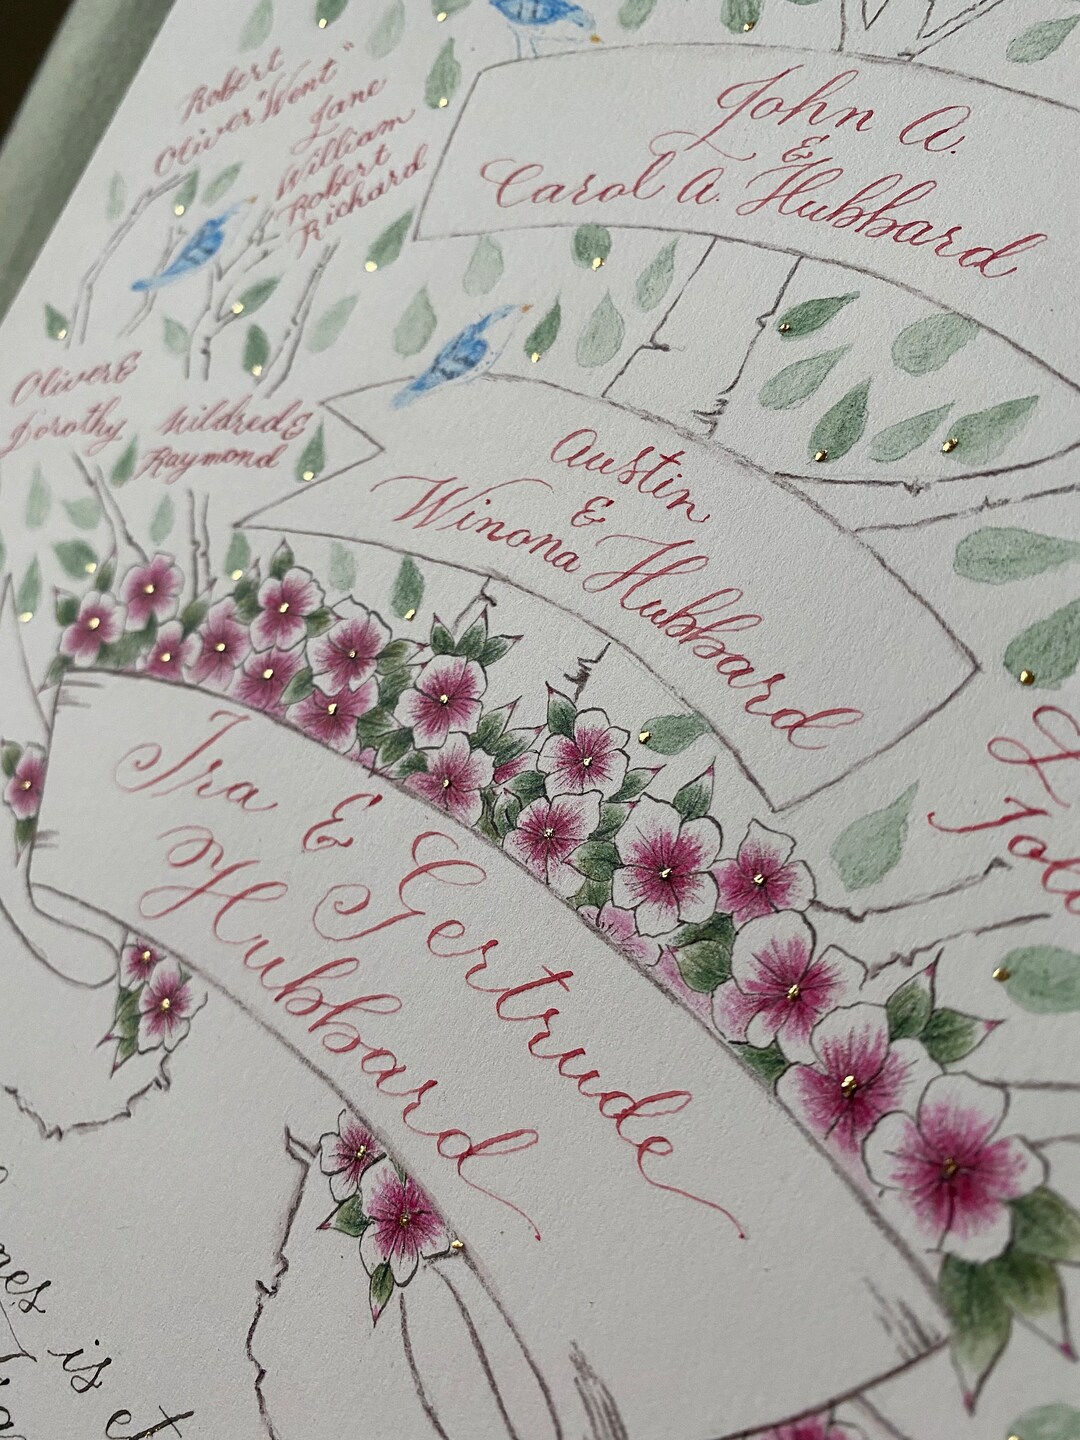 Robert
Oliver "Went"
Jane
William
Robert
Richard
John A.
&
Carol A. Hubbard
Oliver &
Dorothy
Mildred &
Raymond
Austin
&
Winona Hubbard
Ira & Gertrude
Hubbard
is